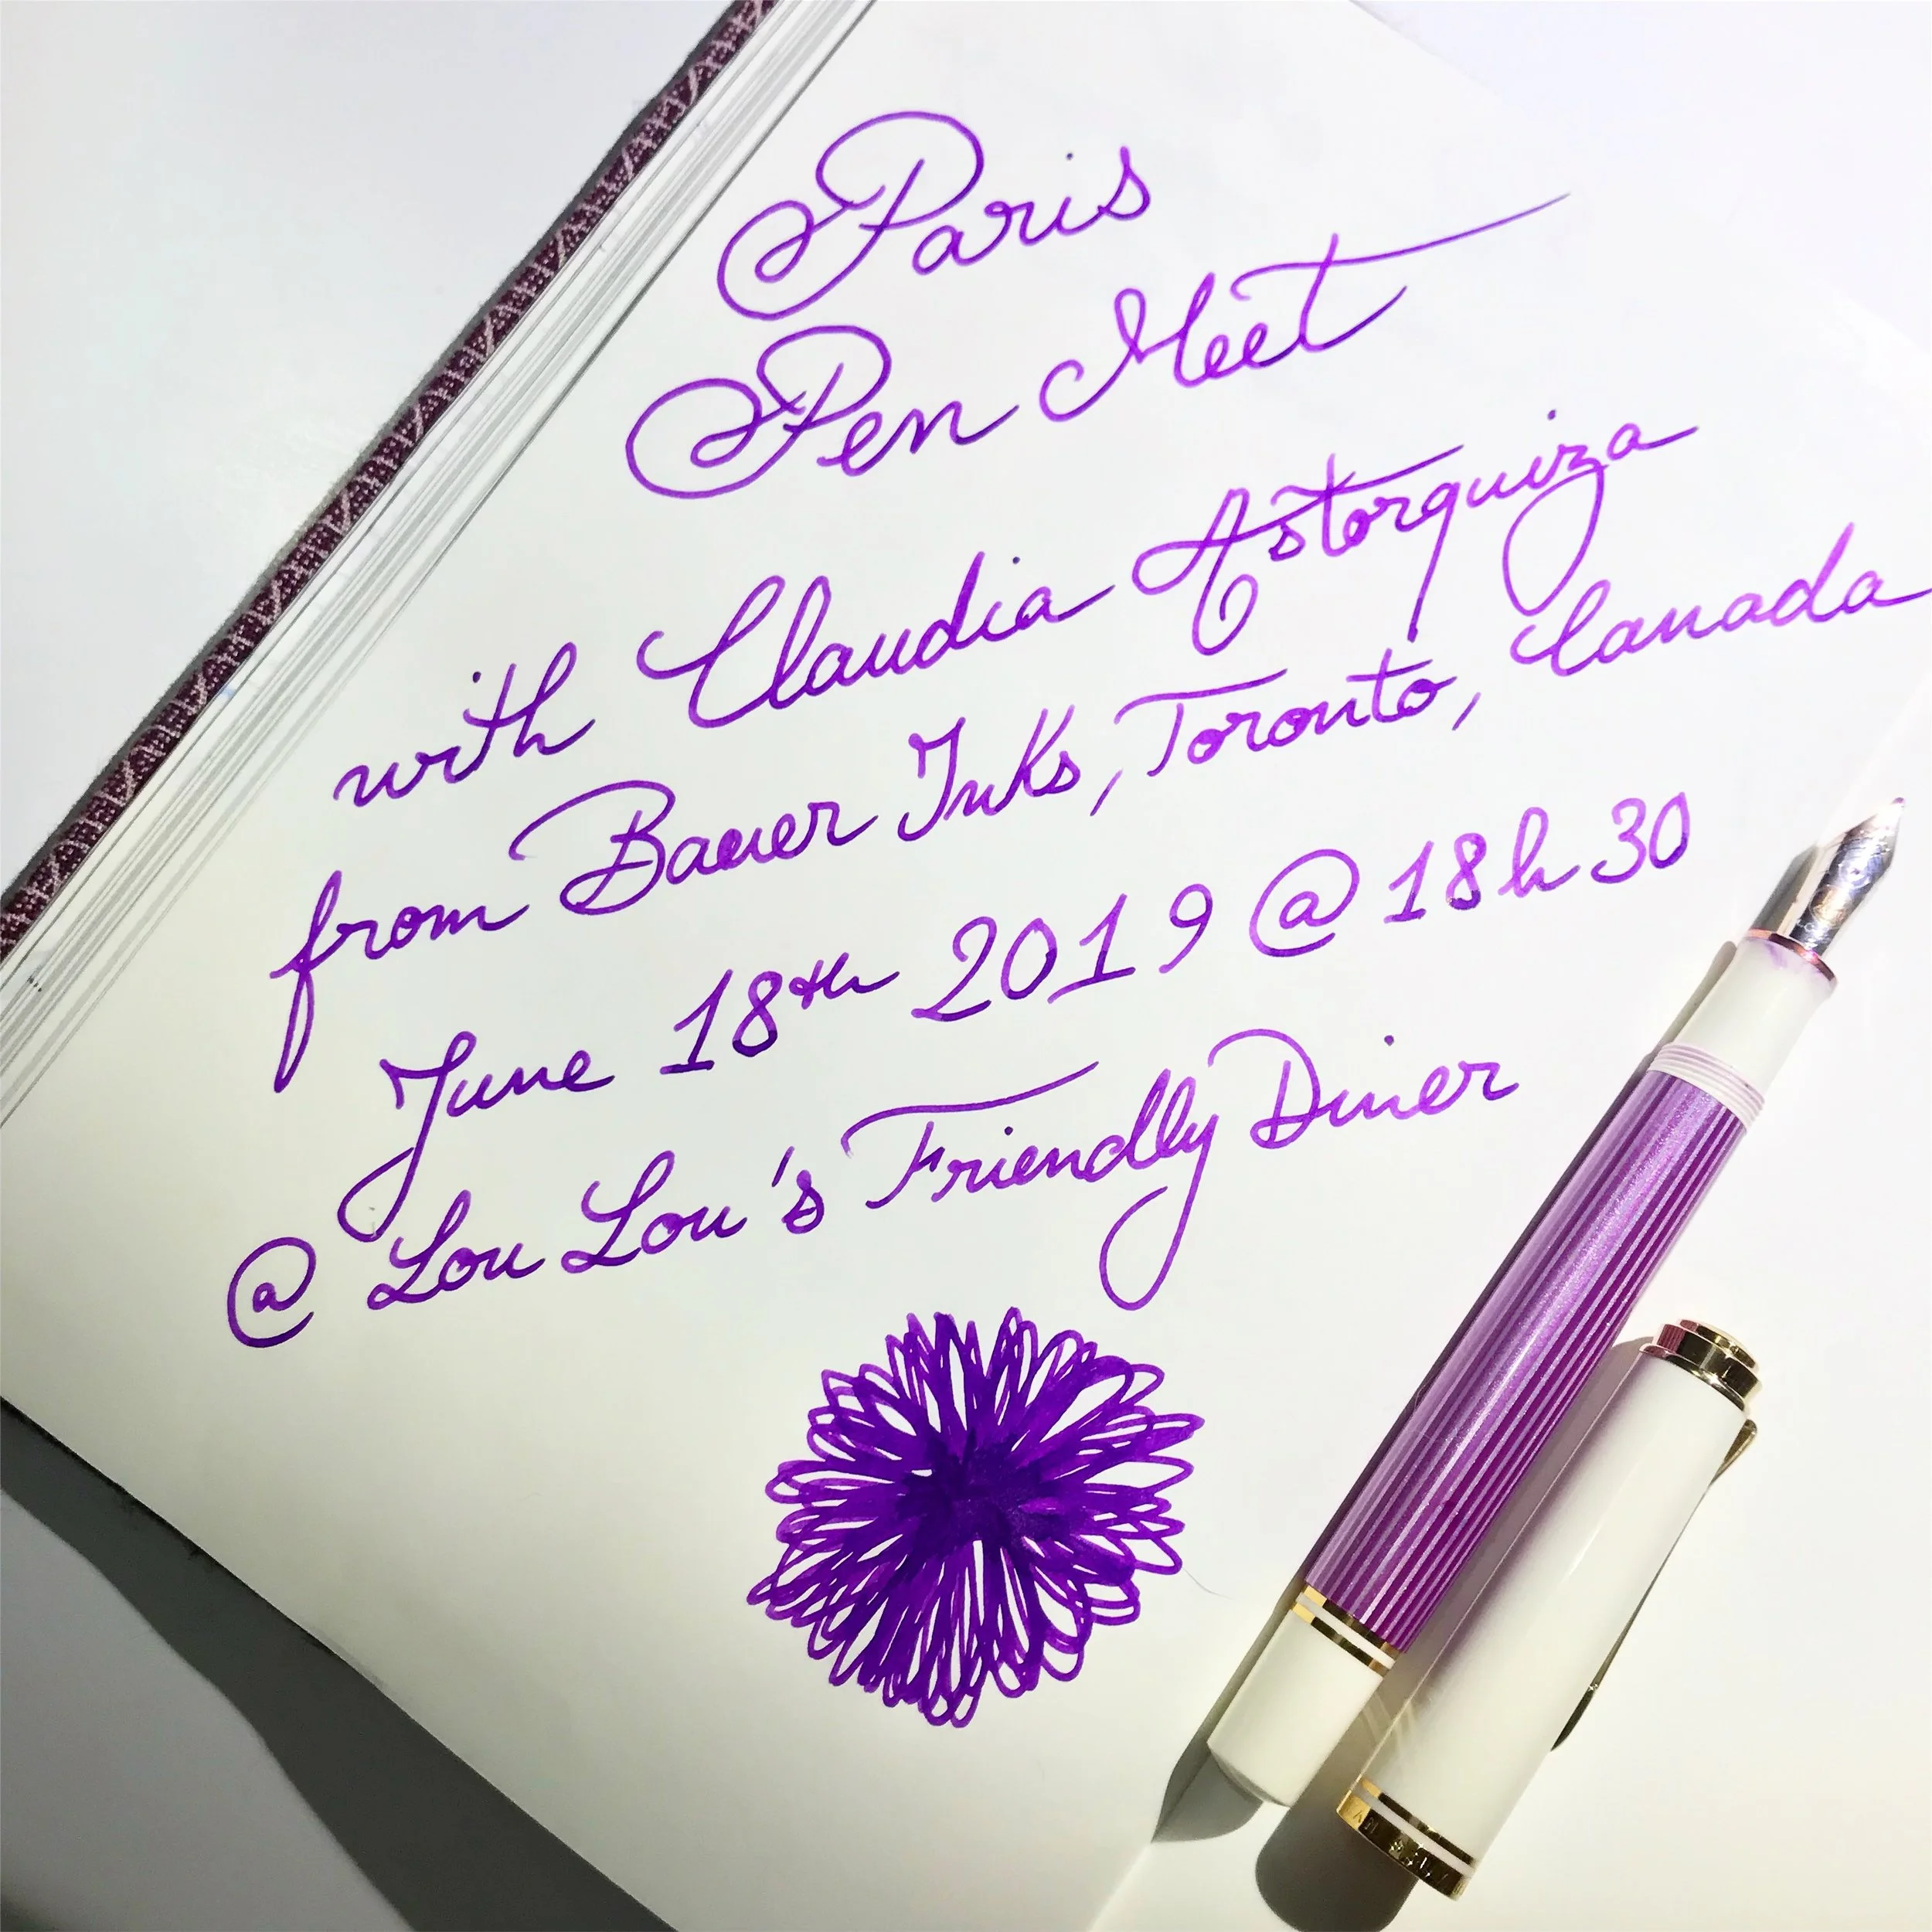 Paris
Pen Meet
with Claudia Astorquiza
from Bauer Inks, Toronto, Canada
June 18th 2019 @ 18h30
@ Lou Lou's Friendly Diner